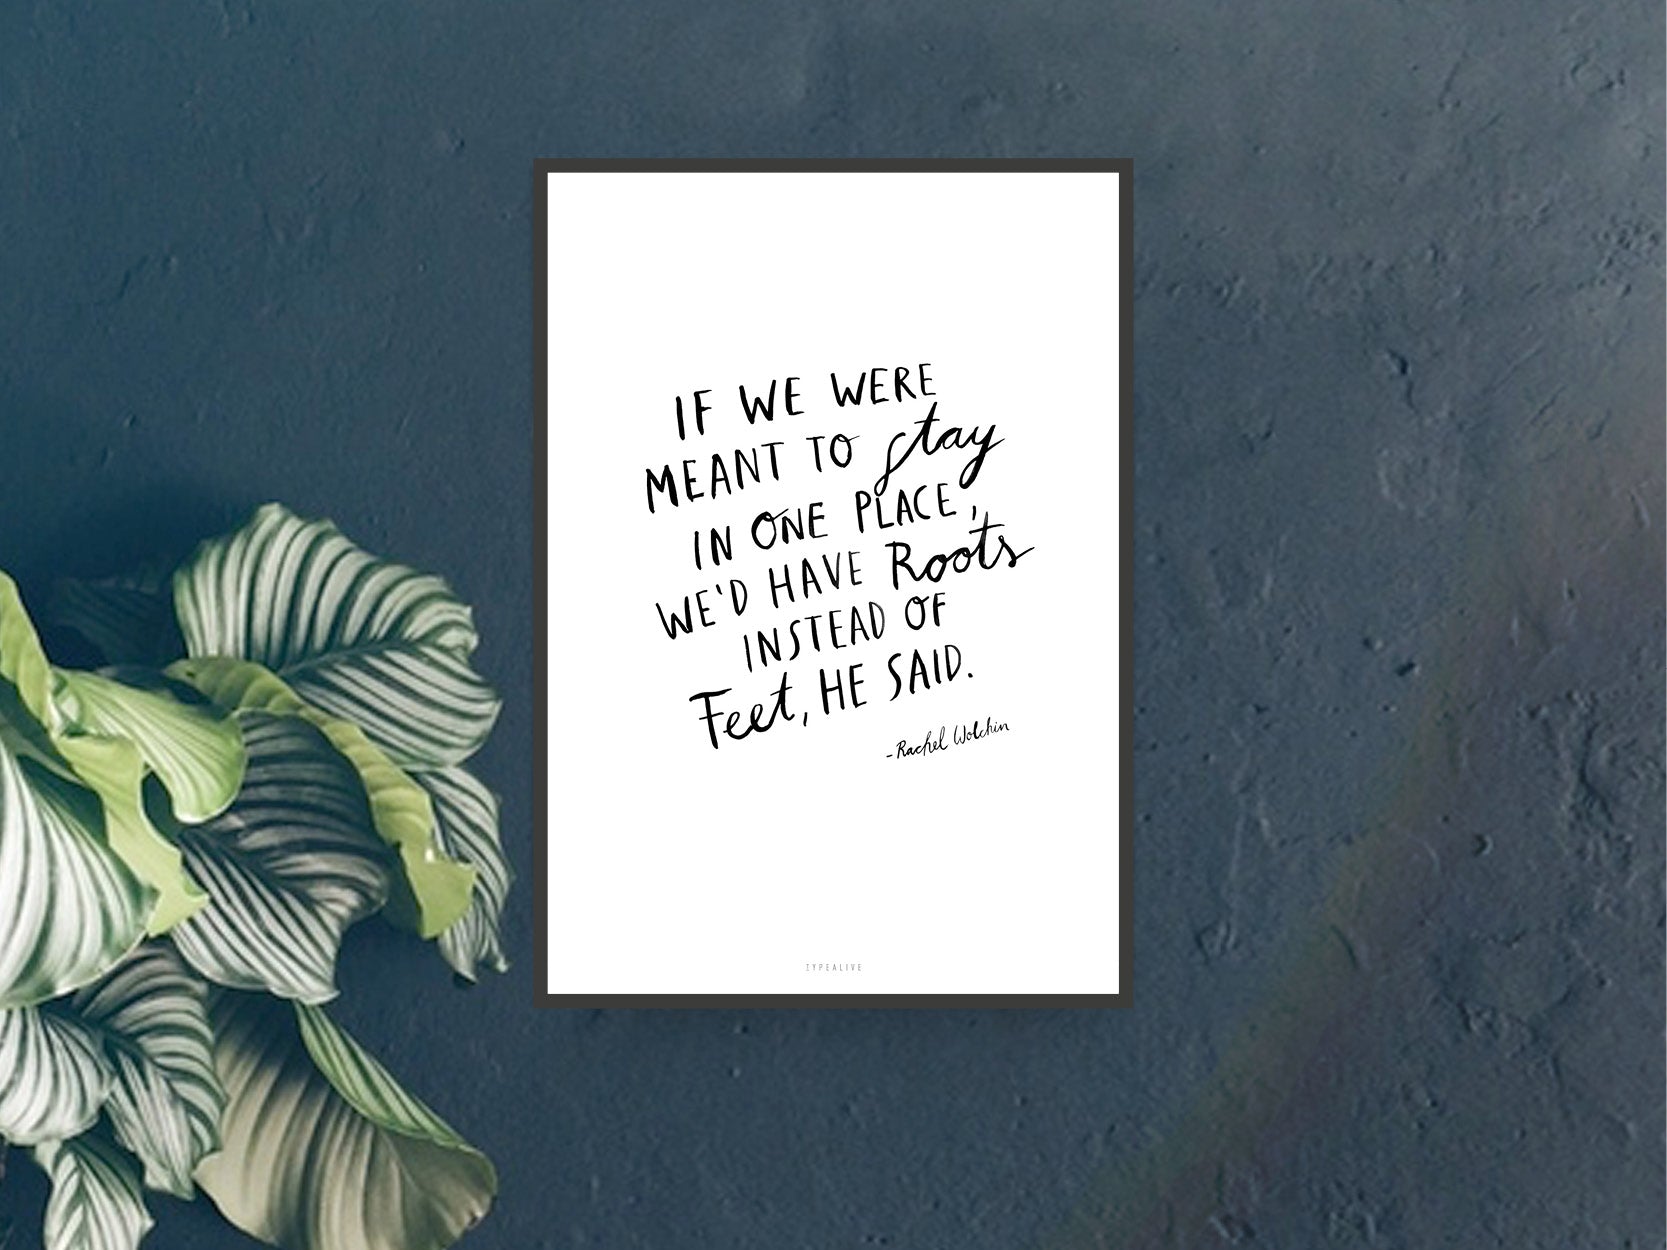 IF WE WERE
MEANT TO stay
IN ONE PLACE,
WE'D HAVE Roots
INSTEAD OF
Feet, HE SAID.
- Rachel Wolchin
TYPEALIVE